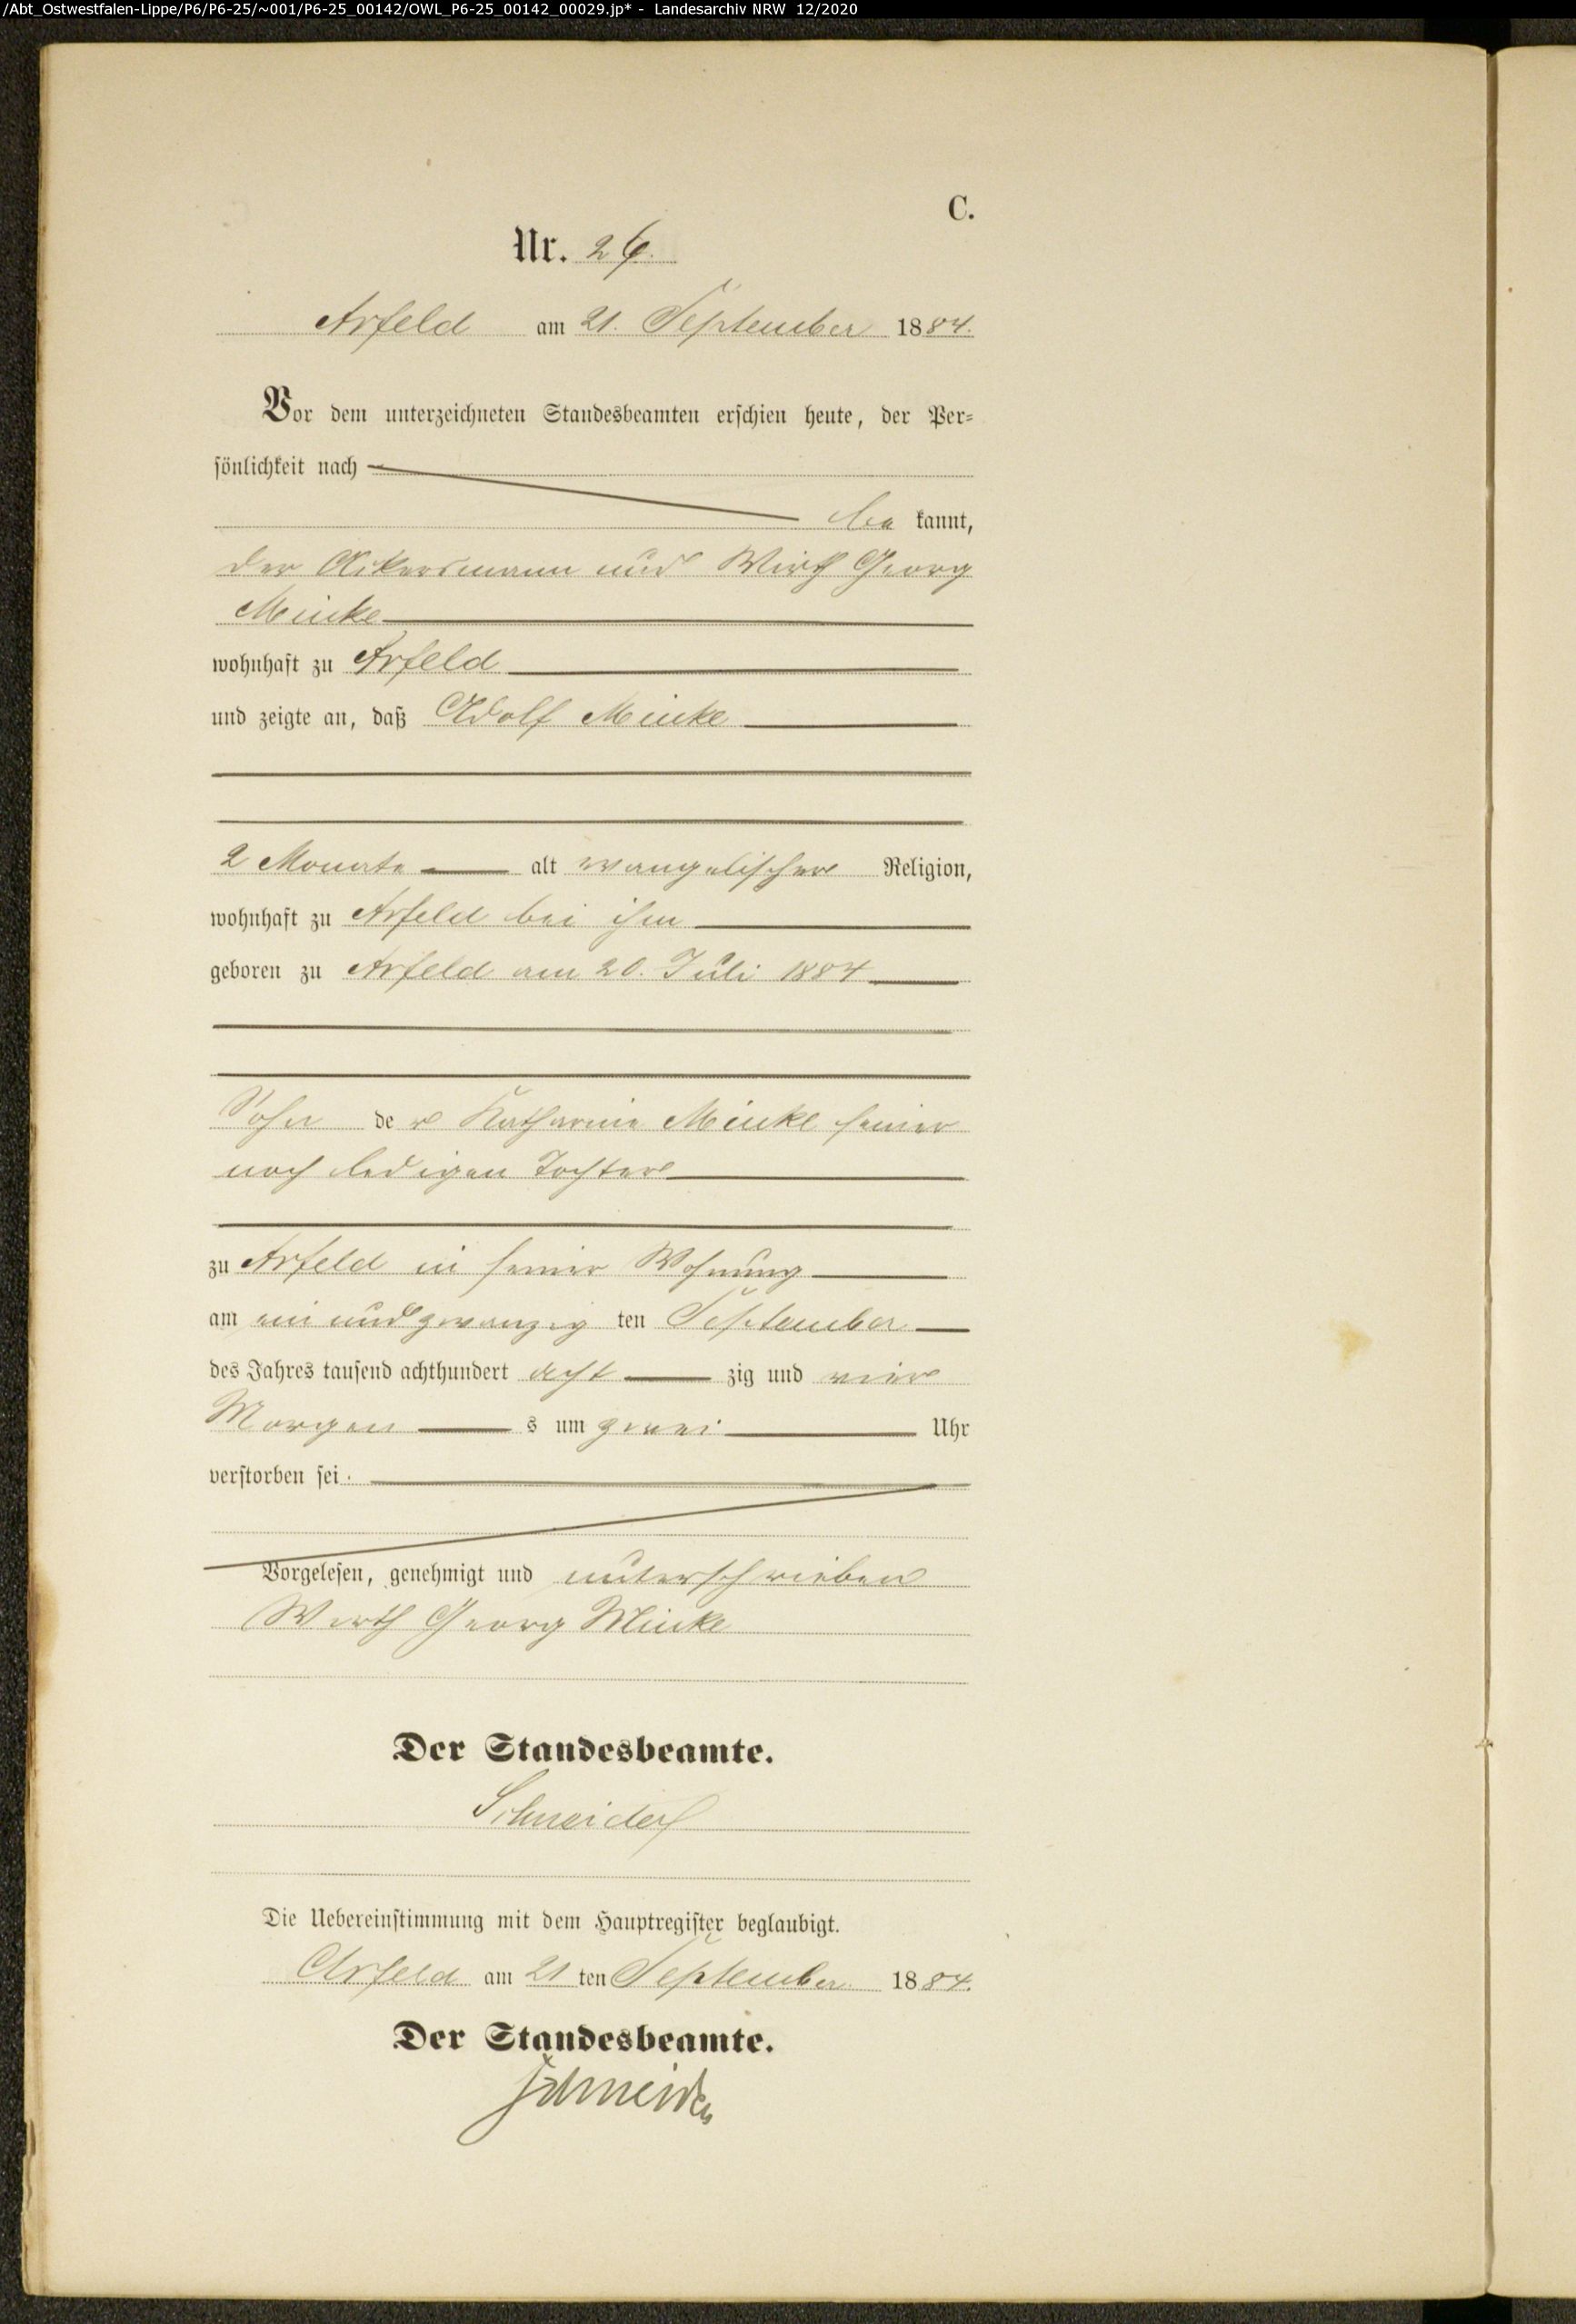 /Abt_Ostwestfalen-Lippe/P6/P6-25/~001/P6-25_00142/OWL_P6-25_00142_00029.jp* - Landesarchiv NRW 12/2020
C.
Nr. 26.
Arfeld am 21. September 1884.
Vor dem unterzeichneten Standesbeamten erschien heute, der Per-
sönlichkeit nach
be kannt,
der Ackersmann und Wirth Georg
Meinke
wohnhaft zu Arfeld
und zeigte an, daß Adolf Meinke
2 Monate alt evangelischer Religion,
wohnhaft zu Arfeld bei ihm
geboren zu Arfeld am 20. Juli 1884
Sohn de r Katharine Meinke seiner
noch ledigen Tochter
zu Arfeld in seiner Wohnung
am ein und zwanzig ten September
des Jahres tausend achthundert acht zig und vier
Morgen s um zwei Uhr
verstorben sei.
Vorgelesen, genehmigt und unterschrieben
Wirth Georg Meinke
Der Standesbeamte.
Schneider
Die Uebereinstimmung mit dem Hauptregister beglaubigt.
Arfeld am 21 ten September 1884.
Der Standesbeamte.
Schneider